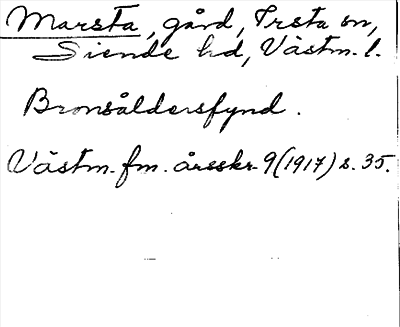 Marsta, gård, Irsta sn,
Siende hd, Västm. l.
Bronsåldersfynd.
Västm. fm. årsskr. 9(1917) s. 35.